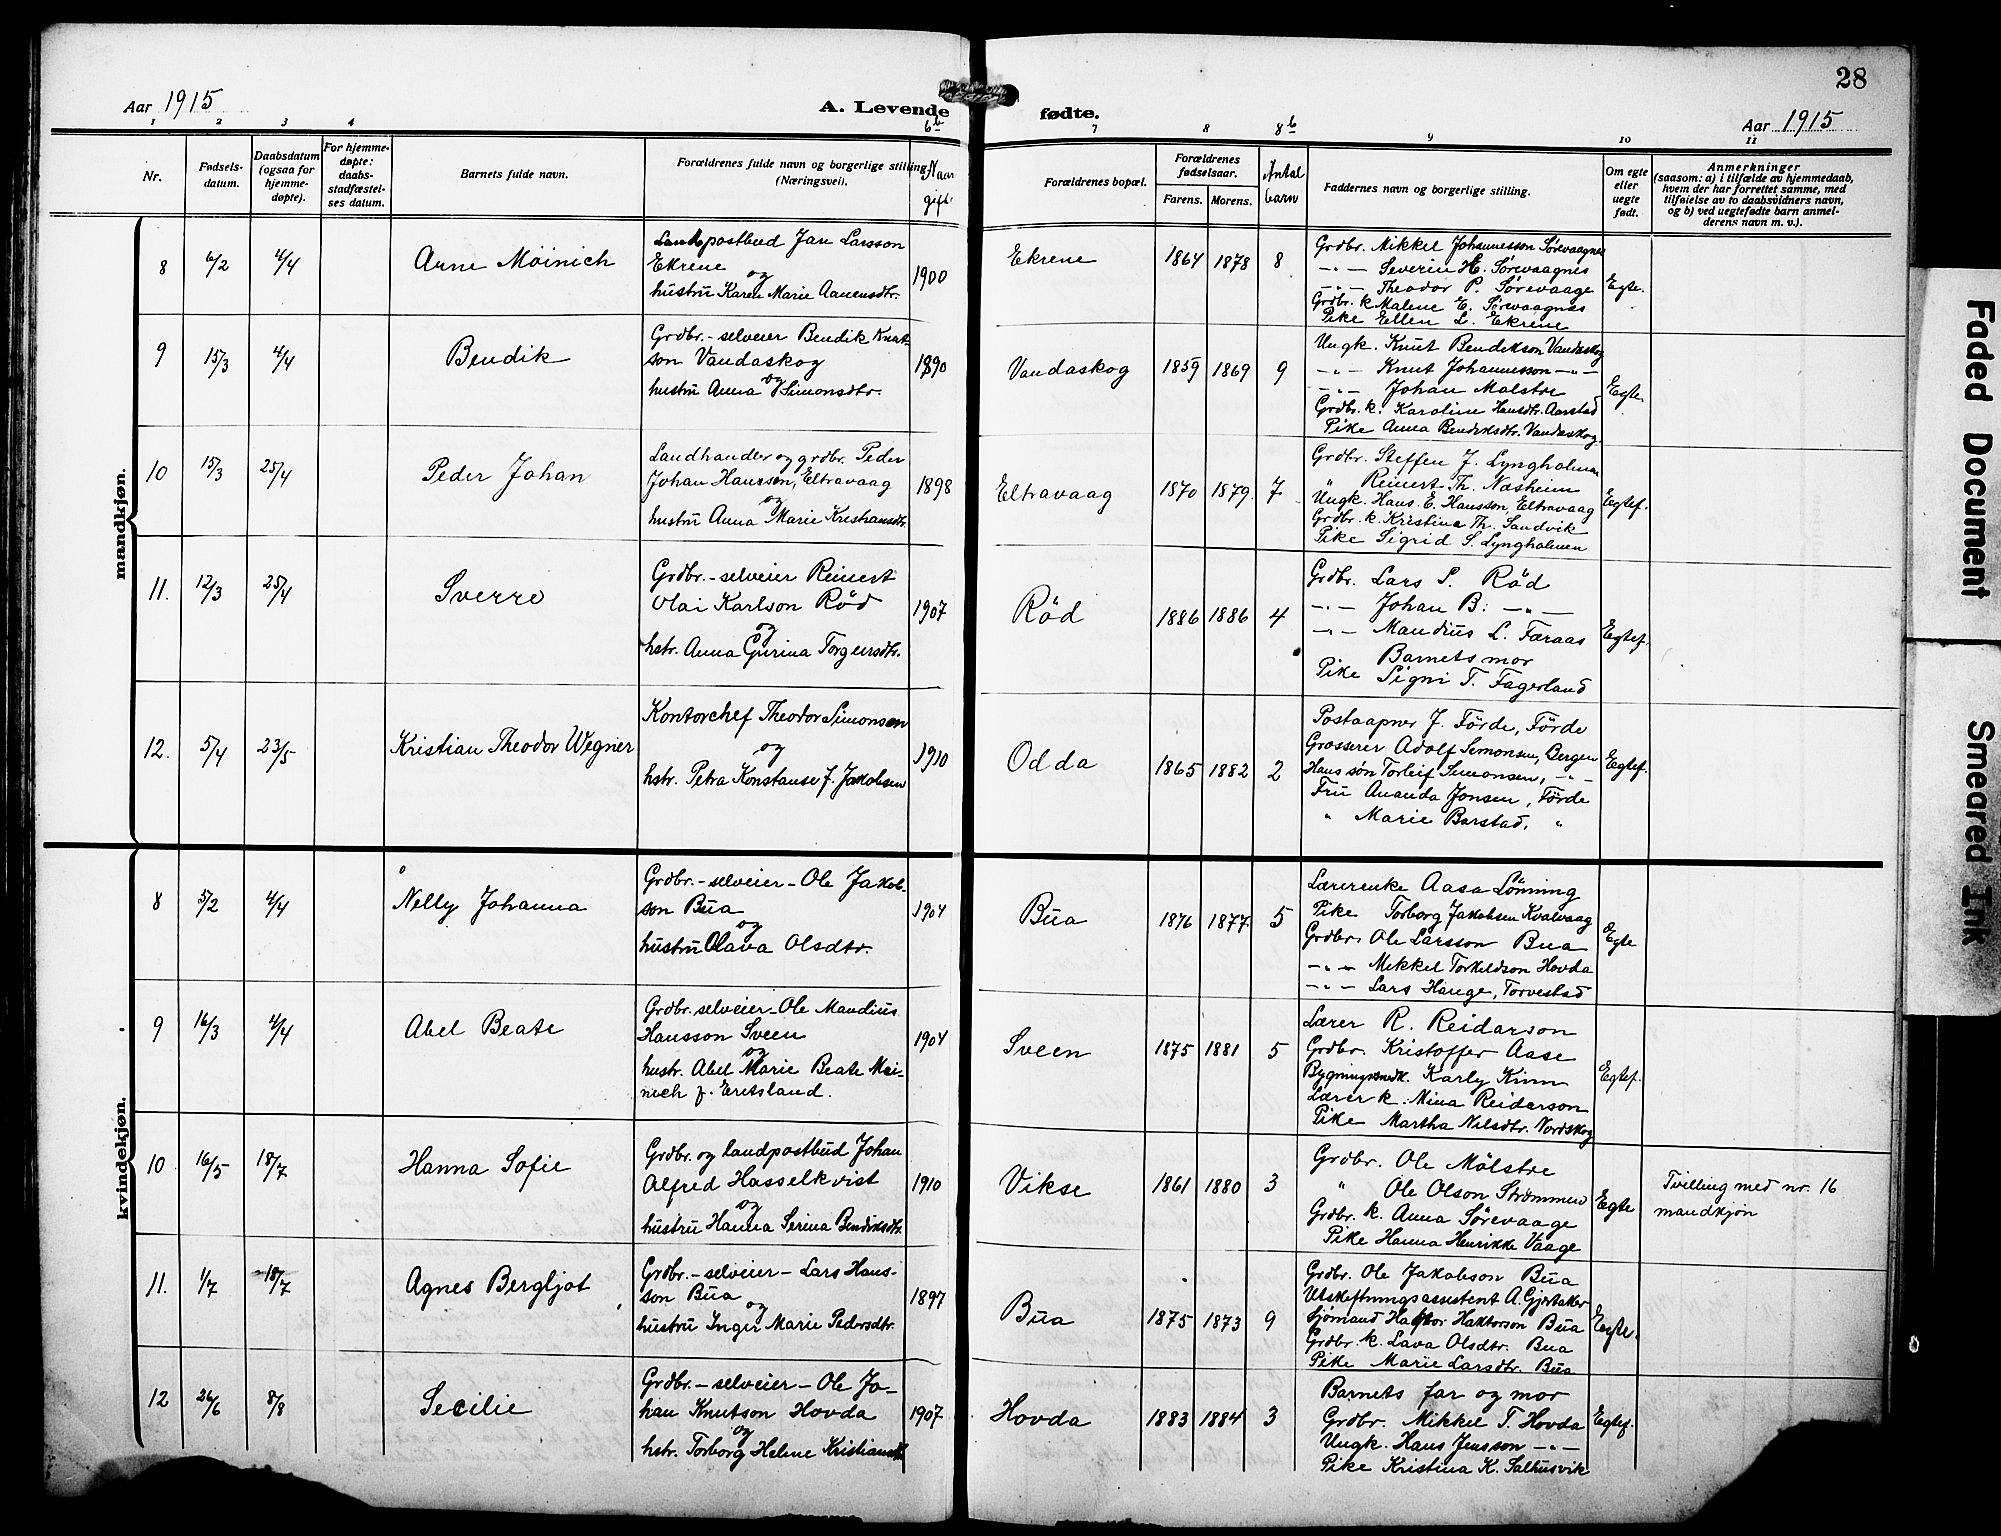 28
Aar 1915
A. Levende fødte.
Aar 1915
1 2 3 4 6b 7 8 8b 9 10 11
Nr.
Fødsels-
datum.
Daabsdatum
(ogsaa for
hjemme-
døpte).
For hjemme-
døpte:
daabs-
stadfæstel-
ses datum.
Barnets fulde navn.
Forældrenes fulde navn og borgerlige stilling
(Næringsvei).
Naar
gift
Forældrenes bopæl.
Forældrenes
fødselsaar.
Farens. Morens.
Antal
barn
Faddernes navn og borgerlige stilling.
Om egte
eller
uegte
født.
Anmerkninger
(saasom: a) i tilfælde av hjemmedaab,
hvem der har forrettet samme, med
tilføielse av to daabsvidners navn,
og b) ved uegtefødte barn anmel-
derens navn m. v.).
mandkjøn.
8 6/2 4/4 Arne Möinich
Landpostbud Jan Larsson
Ekrene
og
hustru Karen Marie Aanensdtr.
1900 Ekrene 1864 1878 8
Grdbr. Mikkel Johannesson Sørevaagnes
-"- Severin H. Sørevaagnes
-"- Theodor P. Sørevaage
Grdbr. k. Malene E. Sørevaagnes
Pike Ellen L. Ekrene
Egte.
9 15/3 4/4 Bendik
Grdbr.-selveier Bendik Knut-
son Vandaskog
og
hustru Anna Simonsdtr.
1890 Vandaskog 1859 1869 9
Ungk. Knut Bendikson Vandaskog
-"- Knut Johannesson -"-
-"- Johan Malstre
Grdbr. k. Karoline Hansdtr. Aarstad
Pike Anna Bendiksdtr. Vandaskog.
Egte.
10 15/3 25/4 Peder Johan
Landhandler og grdbr. Peder
Johan Hanssen, Eltravaag
og
hustru Anna Marie Kristiansdtr.
1898 Eltravaag 1870 1879. 7
Grdbr. Steffen J. Lyngholmen
" Reinert Th. Næsheim
Ungk. Hans E. Hansson, Eltravaag
Grdbr. k. Kristina Th. Sandvik
Pike Sigrid S. Lyngholmen
Egtef.
11. 12/3 25/4 Sverre
Grdbr.-selveier Reinert
Olai Karlson Rød
og
hstr. Anna Gurina Torgersdtr.
1907 Rød 1886 1886 4
Grdbr. Lars S. Rød
-"- Johan B: -"-
-"- Mandius L. Færaas
Barnets mor
Pike Signi T. Fagerland
Egtef.
12. 5/4 23/5 Kristian Theodor Wegner
Kontorchef Theodor Simonsen
og
hstr. Petra Konstanse f. Jakobsen
1910 Odda 1865 1882 2
Postaapner J. Förde, Förde
Grosserer Adolf Simonsen, Bergen
Hans søn Torleif Simonsen, -"-
Fru Ananda Jonsen, Förde
" Marie Barstad, "
Egtef.
kvindekjøn.
8 5/2 4/4 Nelly Johanna
Grdbr.-selveier-Ole Jakob-
son Bua
og
hustru Olava Olsdtr.
1904 Bua 1876 1877 5
Lærerenke Aasa Lönning
Pike Torborg Jakobsen Kvalvaag
Grdbr. Ole Larsson Bua
-"- Mikkel Torkildson Hovda
-"- Lars Hauge, Torvestad
Egte
9 16/3 4/4 Abel Beate
Grdbr. selveier-Ole Mandius
Hansson Sveen
og
hustr. Abel Marie Beate Mei-
nich f. Eretsland.
1904 Sveen 1875 1881 5
Lærer R. Reidarson
Grdbr. Kristoffer Aase
Bygningssnedk. Karly Kinn
Lærer k. Mina Reidarson
Pike Martha Nilsdtr. Nordskog
Egtef.
10 16/5 18/7 Hanna Sofie
Grdbr. og landpostbud Johan
Alfred Hasselkvist
og
hustru Hanna Serina Bendiksdtr.
1910 Vikse 1861 1880 3
Grdbr. Ole Mölstre
" Ole Olson Strømmen
Grdbr. k. Anna Sørevaage
Pike Hanna Henrikke Vaage
Egte
Tvilling med nr. 16
mandkjøn
11. 1/7 18/7 Agnes Bergljot
Grdbr.-selveier-Lars Hans-
son Bua
og
hustru Inger Marie Pedersdtr.
1897 Bua 1875 1873 9
Grdbr. Ole Jakobson Bua
Utskiftningsassistent A. Gjertaker
Sjømand Haktor Haktorson Bua
Grdbr. k. Lava Olsdtr. Bua
Pike Marie Larsdtr. Bua
Egte.
12 26/6 8/8 Secilie
Grdbr.-selveier-Ole Jo-
han Knutson Hovda
og
hstr. Torborg Helene Kristiansdtr.
1907 Hovda 1883 1884 3
Barnets far og mor
Grdbr. Mikkel T. Hovda
Ungk. Hans Jensson -"-
Pike Kristina K. Salhusvik
Egtef.
Faded Document
Smeared Ink